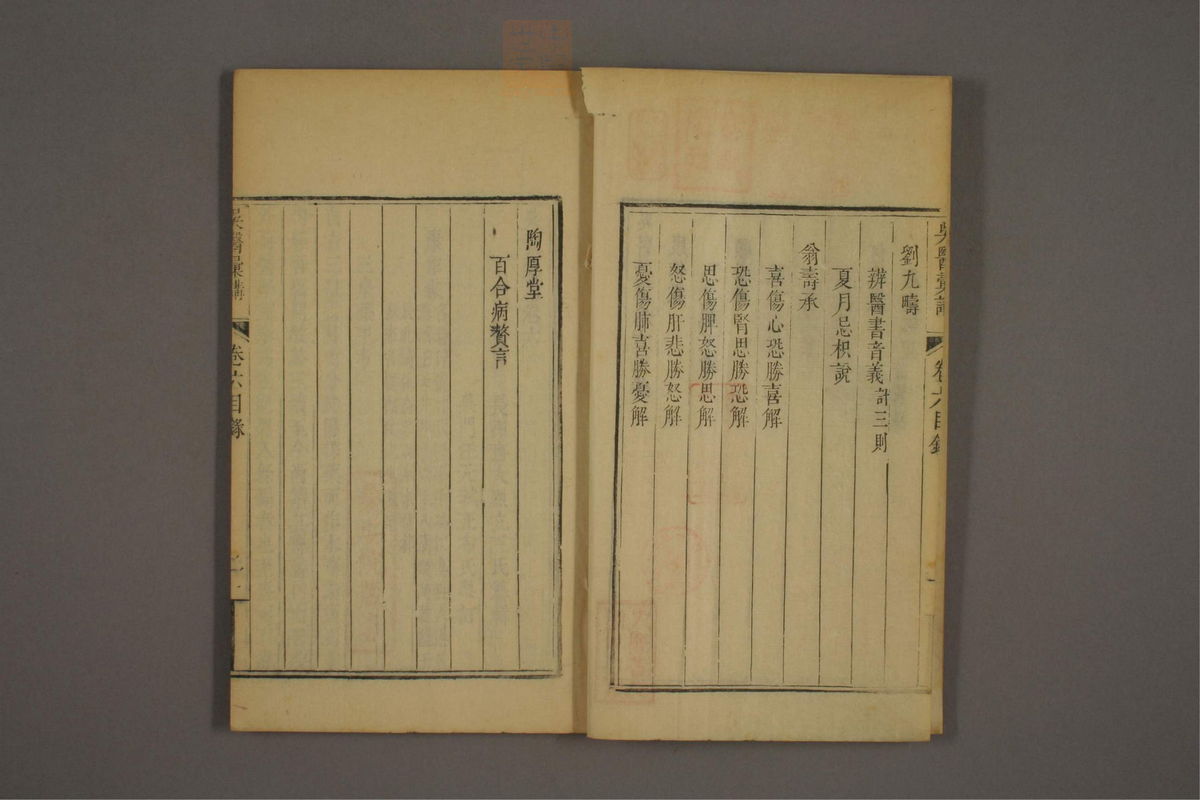 吳醫彙講　卷六目錄
劉九疇
辨醫書音義計三則
夏月忌枳說
翁壽承
喜傷心恐勝喜解
恐傷腎思勝恐解
思傷脾怒勝思解
怒傷肝悲勝怒解
憂傷肺喜勝憂解
陶厚堂
百合病贅言
吳醫彙講　卷六目錄